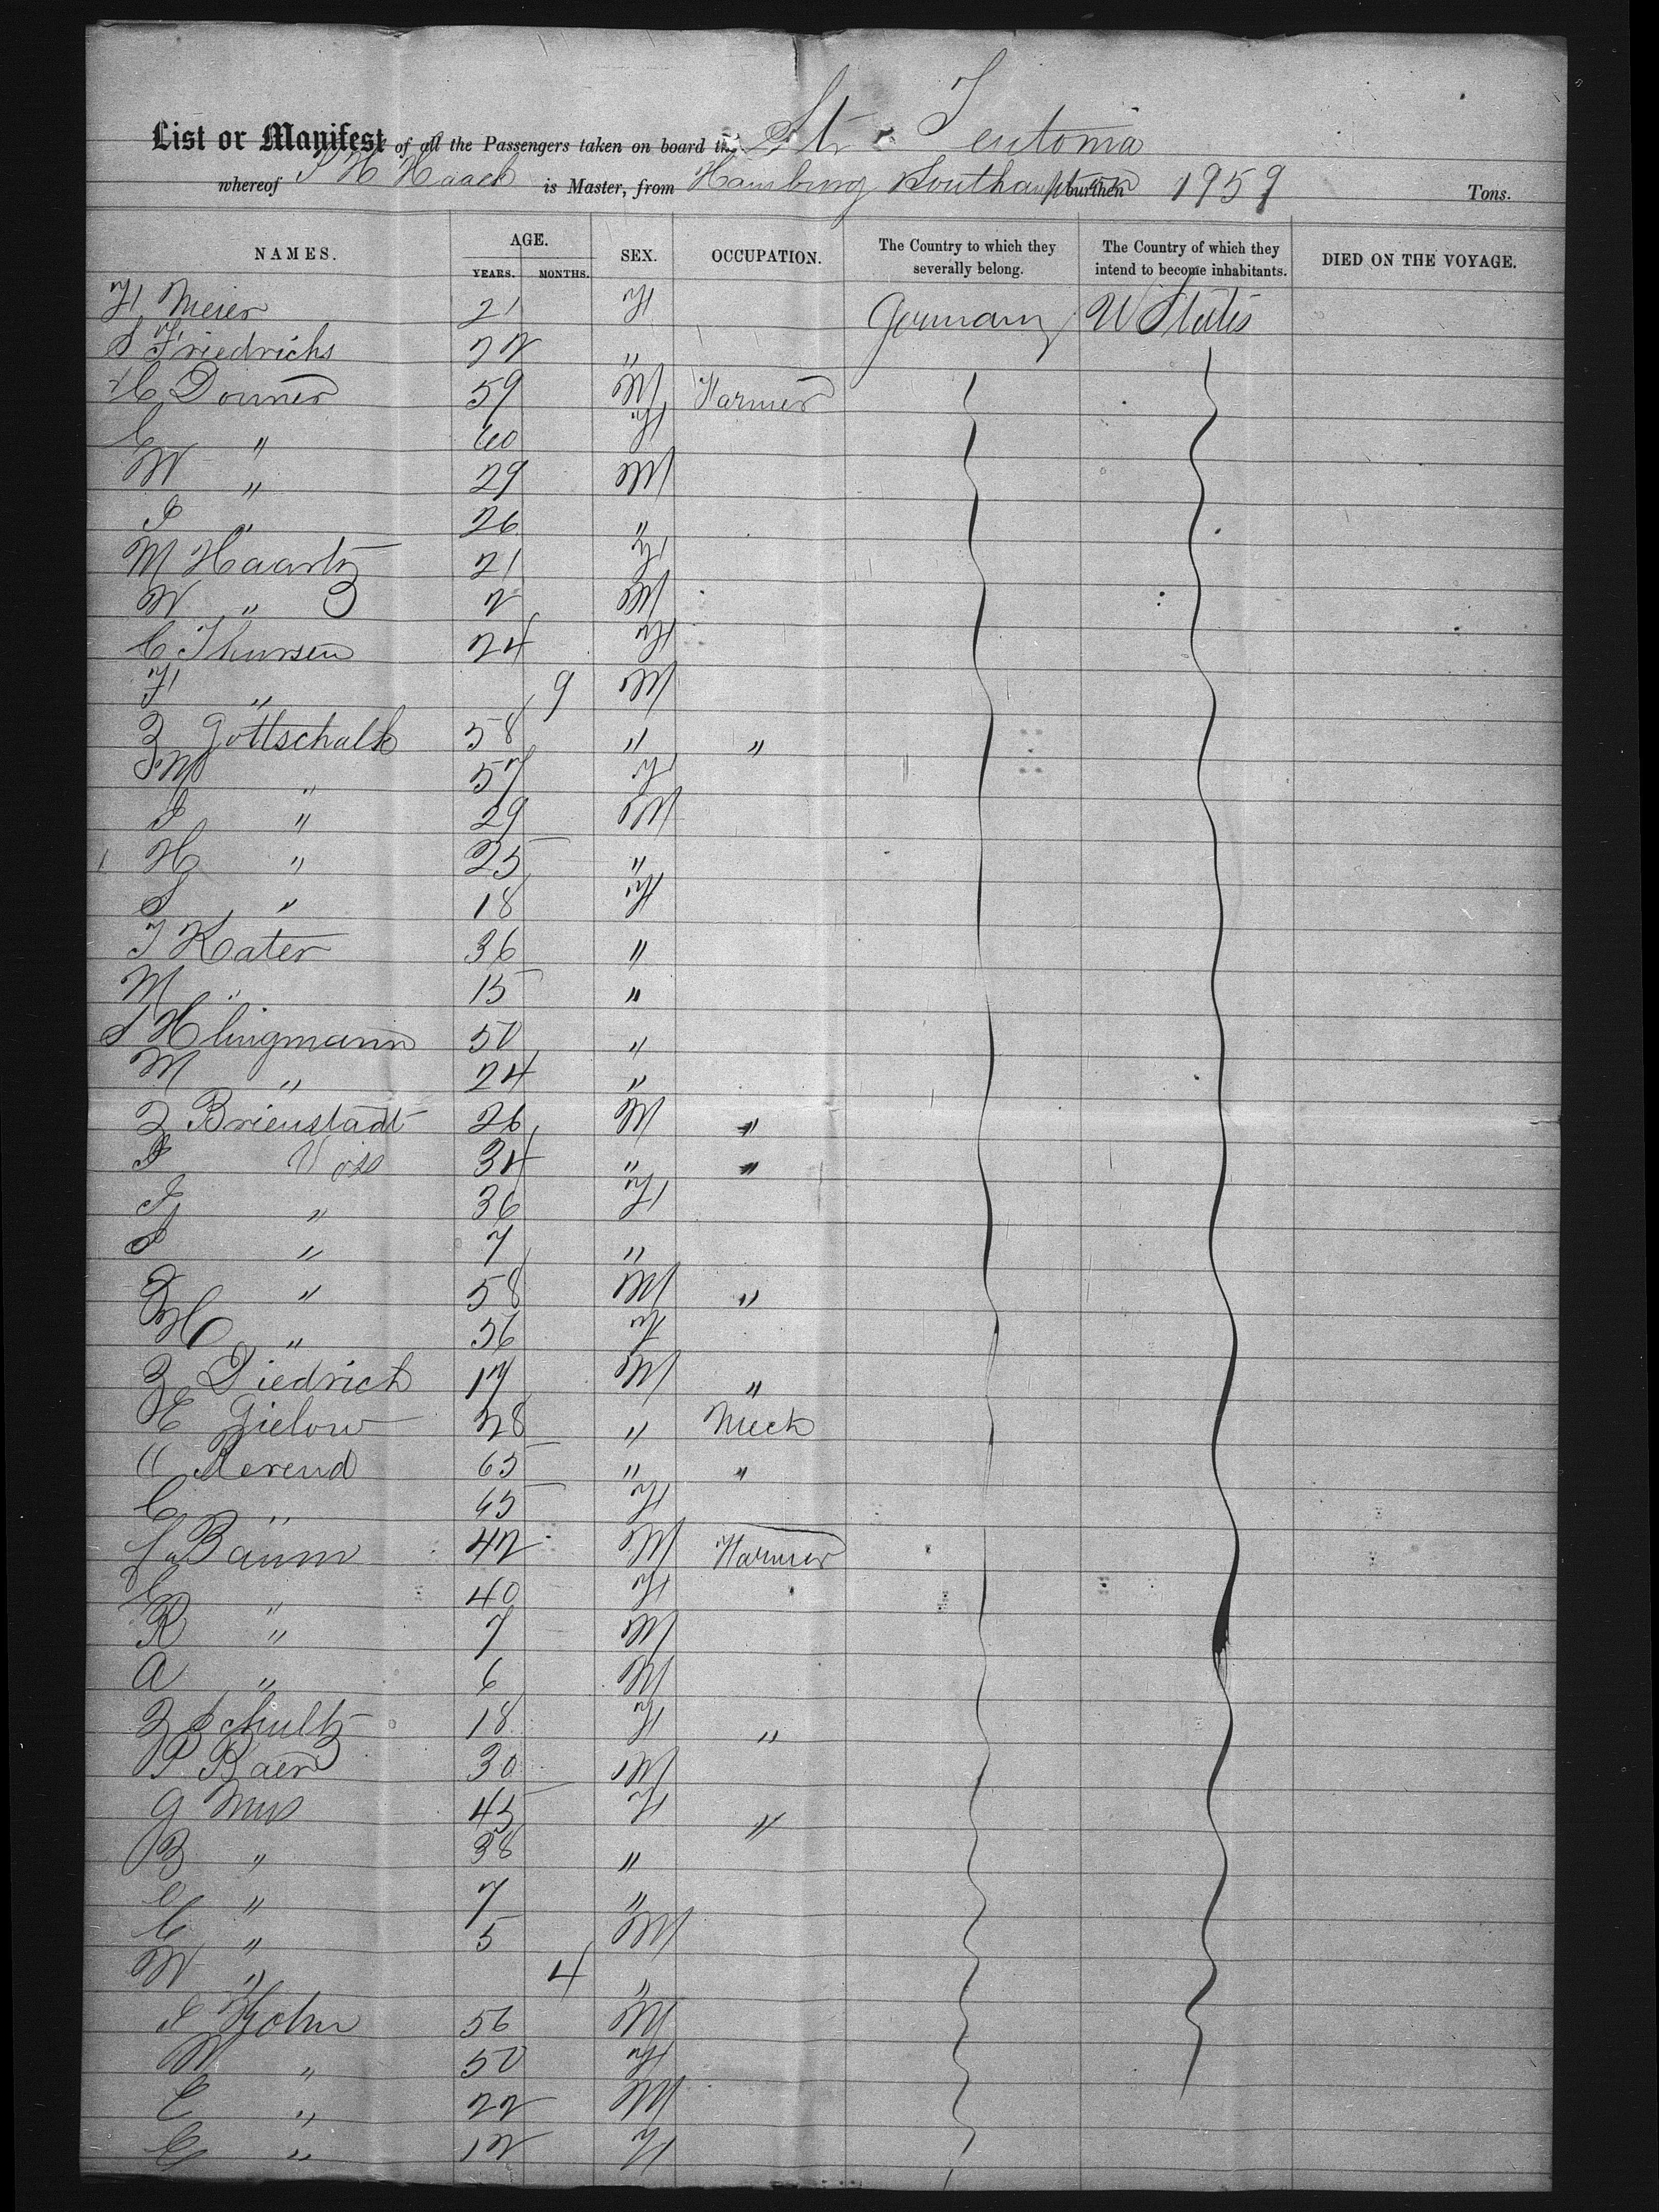 List or Manifest of all the Passengers taken on board the Str Teutonia
whereof J H Haack is Master, from Hamburg Southampton burthen 1959 Tons.
NAMES. AGE. YEARS. MONTHS. SEX. OCCUPATION. The Country to which they severally belong. The Country of which they intend to become inhabitants. DIED ON THE VOYAGE.
F Meier 21 F Germany U States
S Friedrichs 22 "
H Donner 59 M Farmer
C " 60 F
W " 29 M
J " 26 "
M Haartz 21 F
W " 2 M
C Thursen 24 F
F " 9 M
Z Gottschalk 58 " "
M " 57 F
J " 29 M
H " 25 "
S " 18 F
T Kater 36 "
M " 15 "
S Klingmann 50 "
M " 24 "
Z Brienstadt 26 M "
J Voss 34 " "
J " 36 F
S " 7 "
" 58 M "
H " 56 F
Z Diedrich 17 M "
E Gielow 28 " Mech
C Berend 65 " "
C " 65 F
Baum 42 M Farmer
C " 40 F
R " 7 M
A " 6 M
Z Schultz 18 F "
P Baer 30 M
G Mus 45 F "
B " 38 "
C " 7 "
C " 5 M
W " 4 "
J 56 M
W " 50 F
E " 22 M
C " 12 F